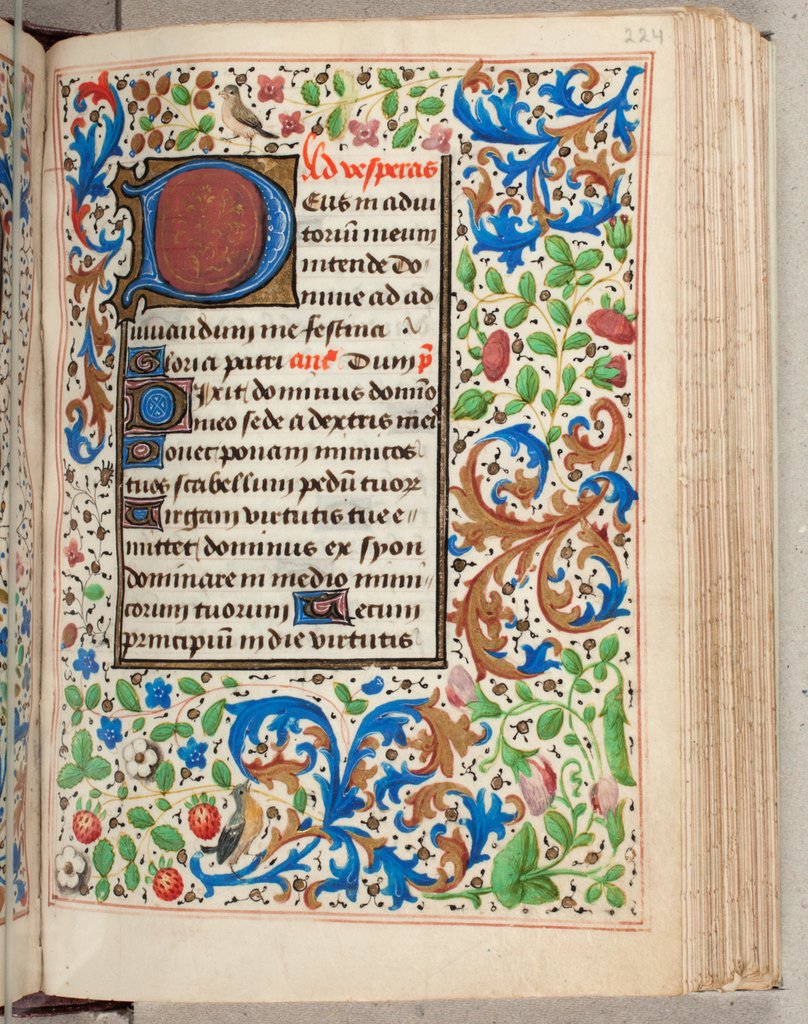 224
Ad vesperas
Deus in adiu
toriū meum
intende Do
mine ad ad
iuuandum me festina
Gloria patri an̄t Dum p̄
Dixit dominus domīo
meo sede a dextris meis
Donec ponam inimicos
tuos scabellum pedū tuoꝝ
Uirgam virtutis tue e
mittet dominus ex syon
dominare in medio inimi
corum tuorum Tecum
principiū in die virtutis